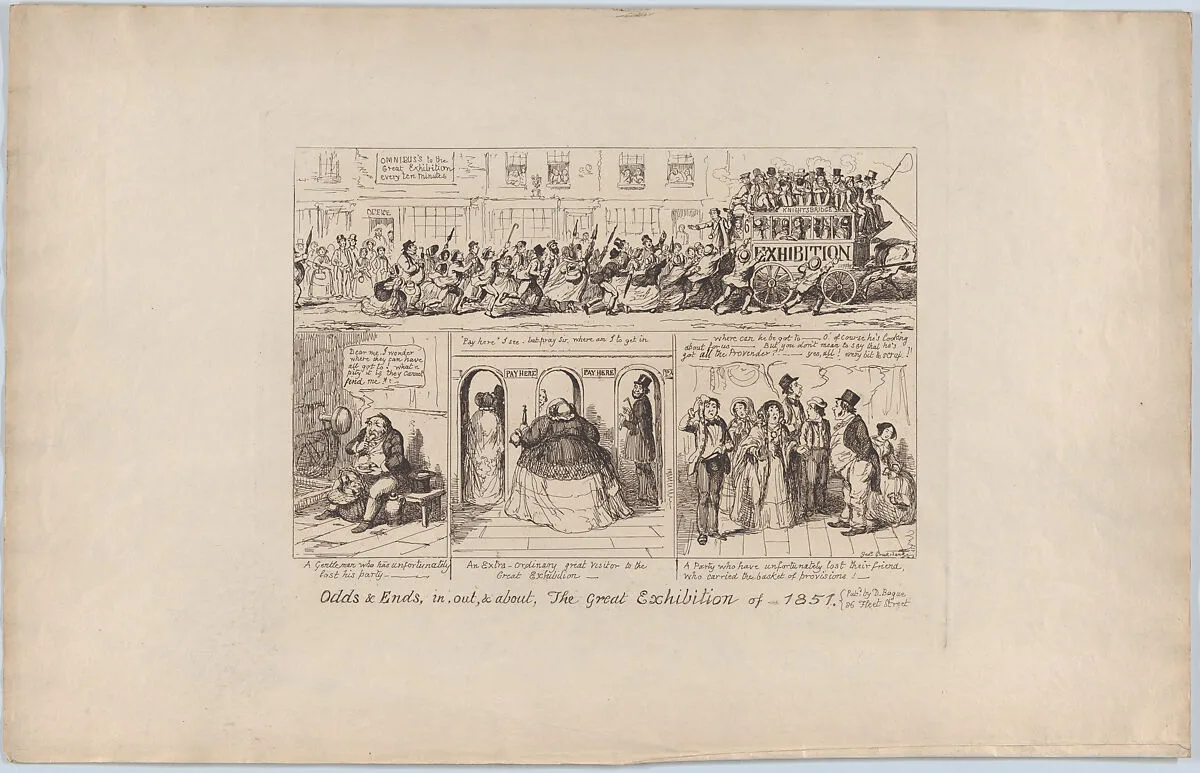 OMNIBUS'S to the
Great Exhibition
every ten minutes
OFFICE
KNIGHTSBRIDGE
EXHIBITION
Dear me, I wonder
where they can have
all got to! what a
pity it is they cannot
find me!!
"Pay here" I see – but pray Sir, where am I to get in
PAY HERE
PAY HERE
where can he be got to — O, of course he's looking
about for us — But you don't mean to say that he's
got all the Provender? — yes, all! every bit & scrap!!
Geo. Cruikshank
A Gentleman who has unfortunately
lost his party —
An Extra-ordinary great Visitor to the
Great Exhibition —
A Party who have unfortunately lost their friend,
who carried the basket of provisions! —
Odds & Ends, in, out, & about, The Great Exhibition of 1851.
Pubd. by D. Bogue
86 Fleet Street